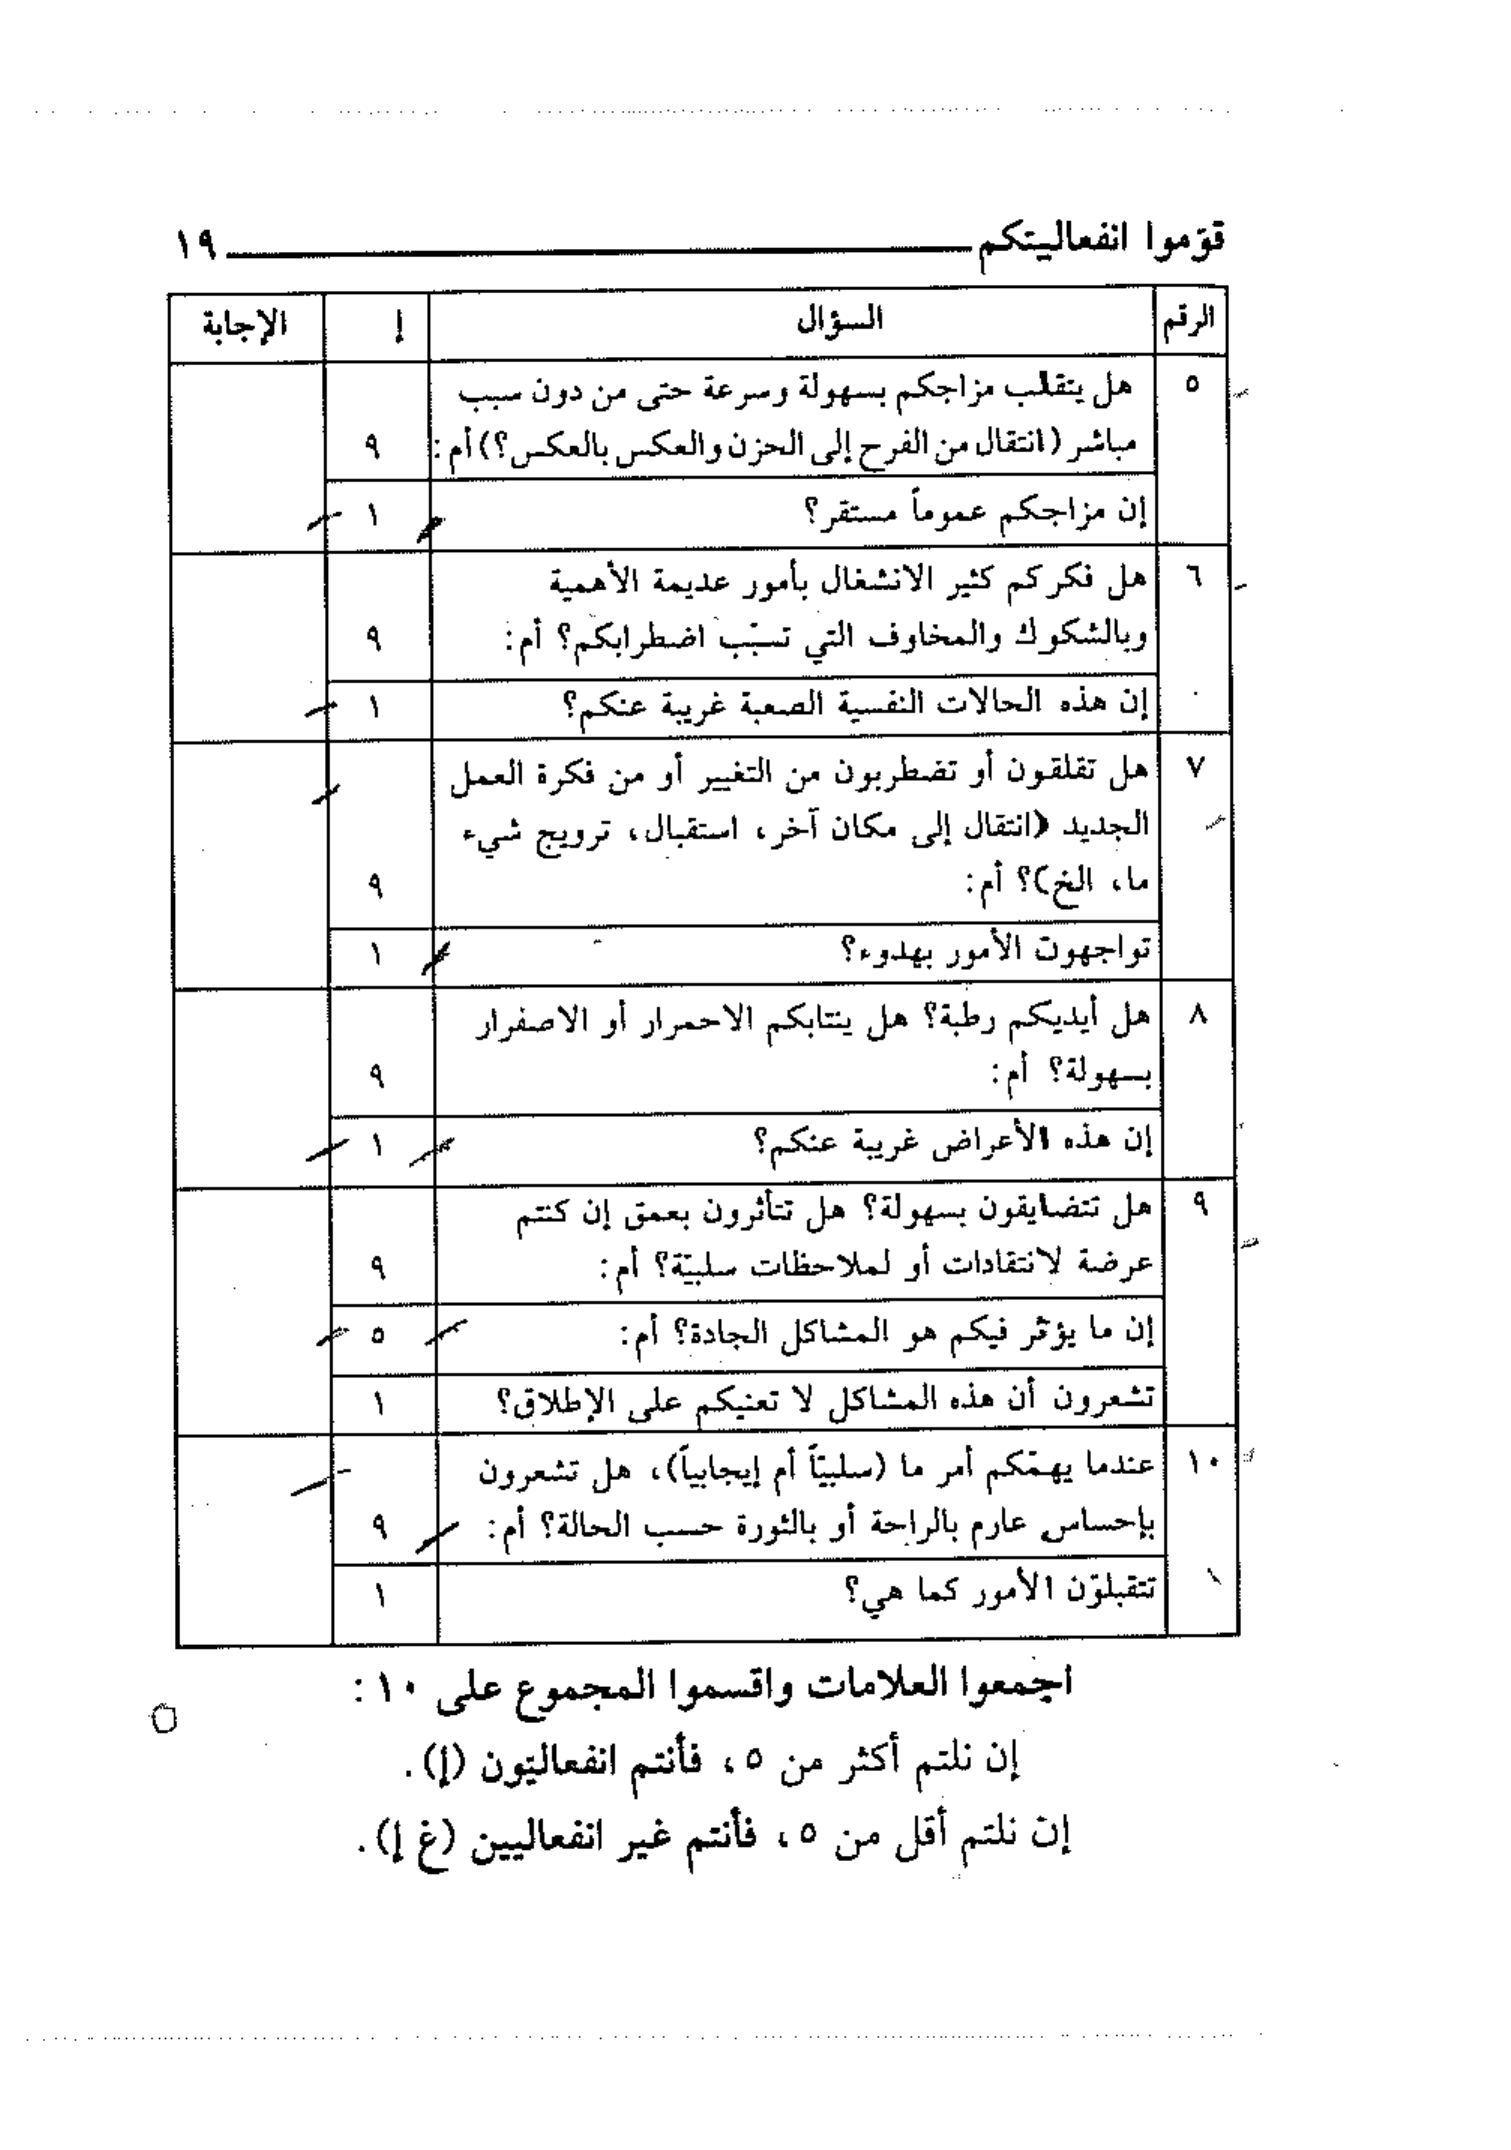 قوّموا انفعاليتكم ١٩
الرقم السؤال إ الإجابة
٥ هل يتقلب مزاجكم بسهولة وسرعة حتى من دون سبب
مباشر (انتقال من الفرح إلى الحزن والعكس بالعكس؟) أم: ٩
إن مزاجكم عموماً مستقر؟ ١
٦ هل فكركم كثير الانشغال بأمور عديمة الأهمية
وبالشكوك والمخاوف التي تسبّب اضطرابكم؟ أم: ٩
إن هذه الحالات النفسية الصعبة غريبة عنكم؟ ١
٧ هل تقلقون أو تضطربون من التغيير أو من فكرة العمل
الجديد (انتقال إلى مكان آخر، استقبال، ترويج شيء
ما، الخ)؟ أم: ٩
تواجهون الأمور بهدوء؟ ١
٨ هل أيديكم رطبة؟ هل ينتابكم الاحمرار أو الاصفرار
بسهولة؟ أم: ٩
إن هذه الأعراض غريبة عنكم؟ ١
٩ هل تتضايقون بسهولة؟ هل تتأثرون بعمق إن كنتم
عرضة لانتقادات أو لملاحظات سلبيّة؟ أم: ٩
إن ما يؤثّر فيكم هو المشاكل الجادة؟ أم: ٥
تشعرون أن هذه المشاكل لا تعنيكم على الإطلاق؟ ١
١٠ عندما يهمّكم أمر ما (سلبيّاً أم إيجابياً)، هل تشعرون
بإحساس عارم بالراحة أو بالثورة حسب الحالة؟ أم: ٩
تتقبلوّن الأمور كما هي؟ ١
اجمعوا العلامات واقسموا المجموع على ١٠:
إن نلتم أكثر من ٥، فأنتم انفعاليّون (إ).
إن نلتم أقل من ٥، فأنتم غير انفعاليين (غ إ).